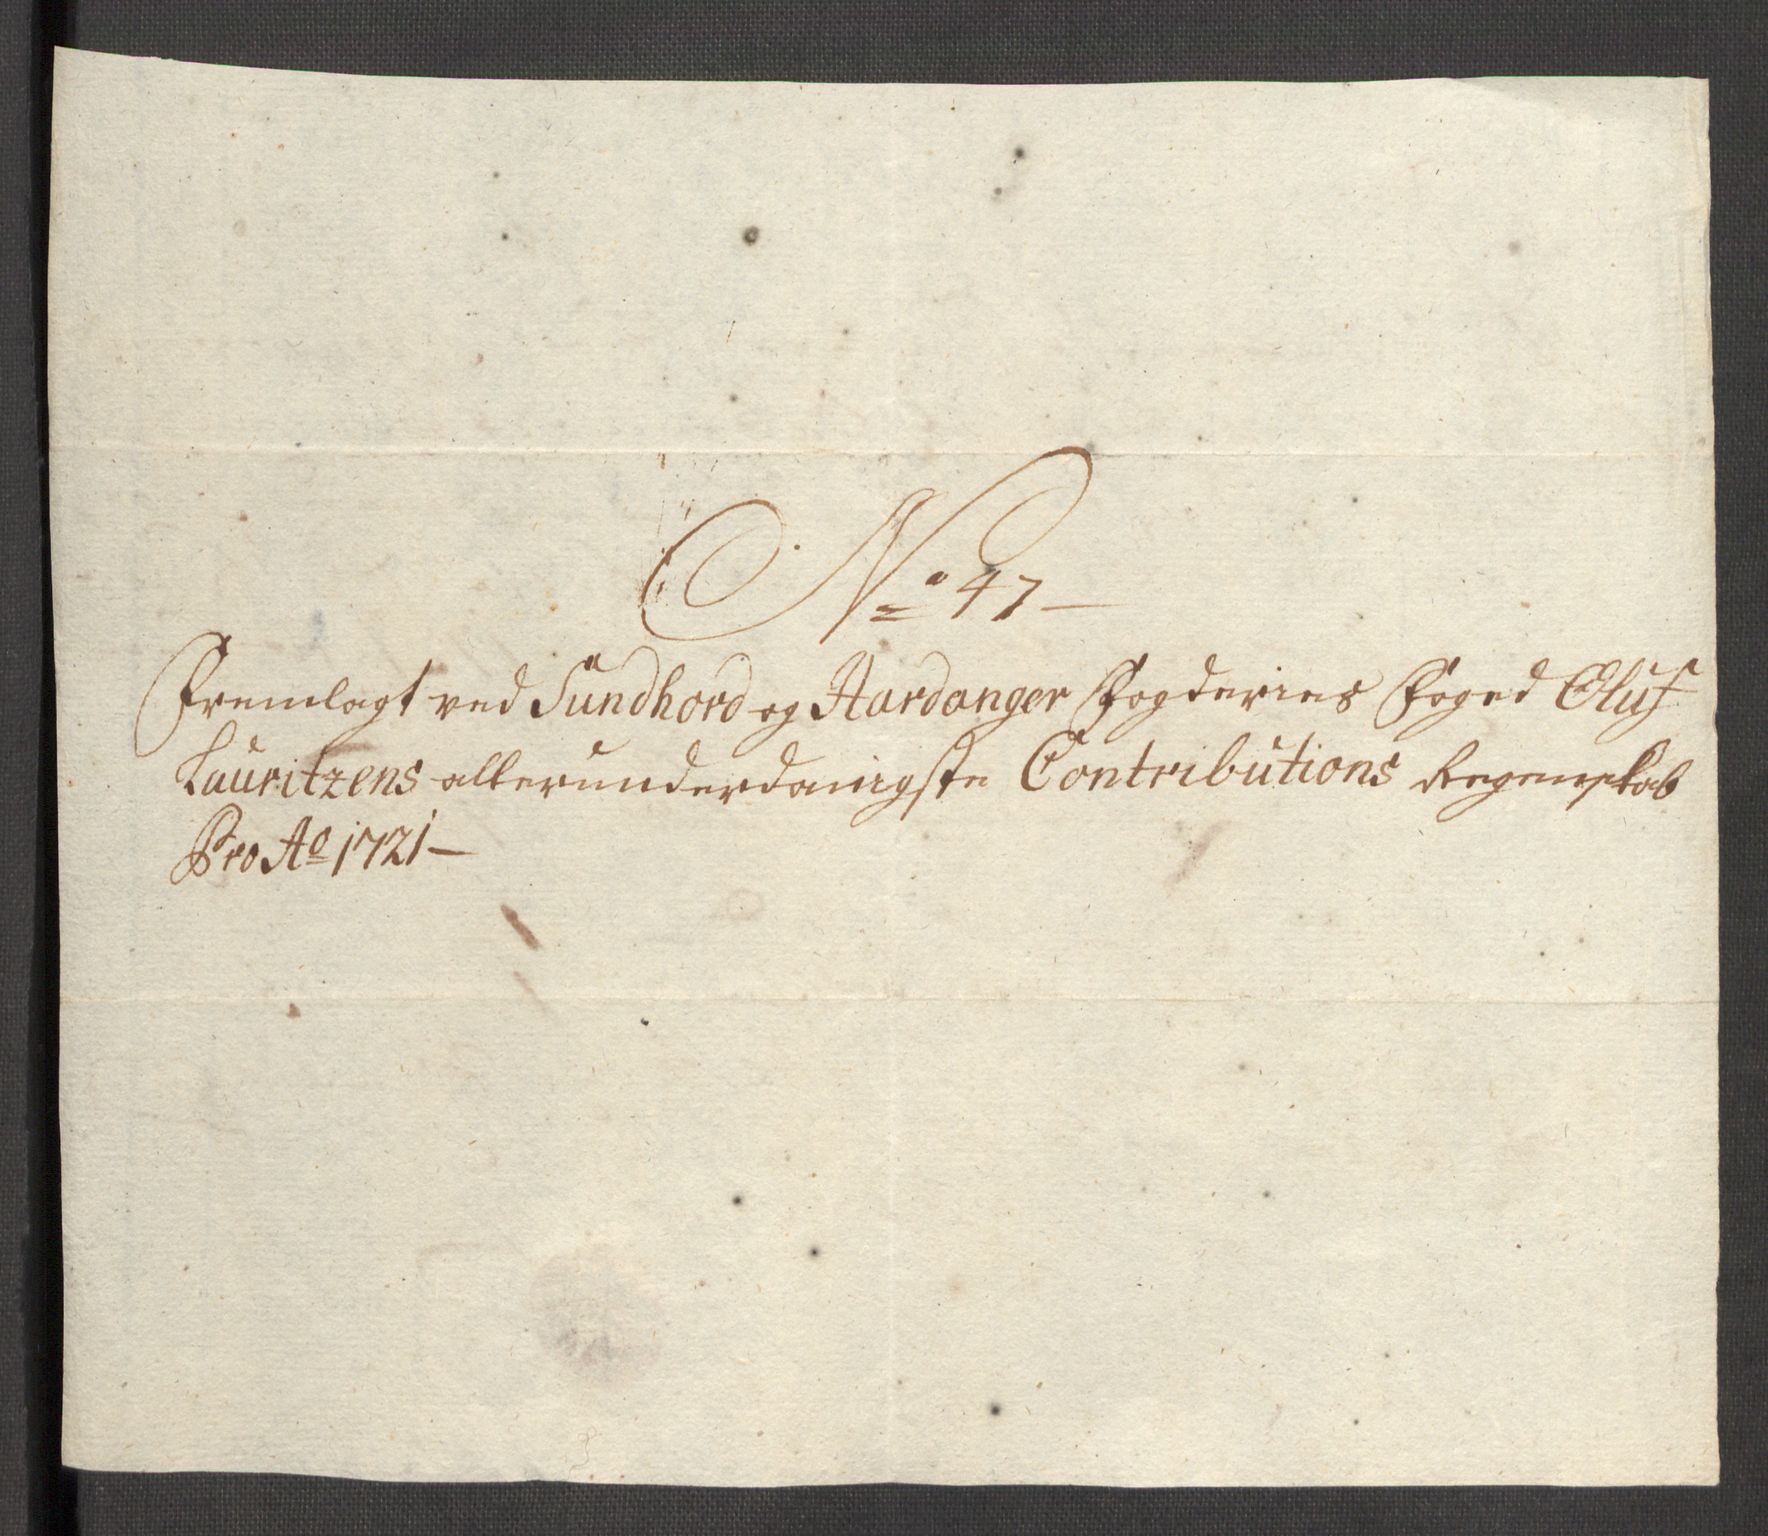 No 47 —
Fremlagt ved Sundhord og Hardanger Fogderies Foged Oluf
Lauritzens allerunderdanigste Contributions Regenskab
Pro Ao 1721 —